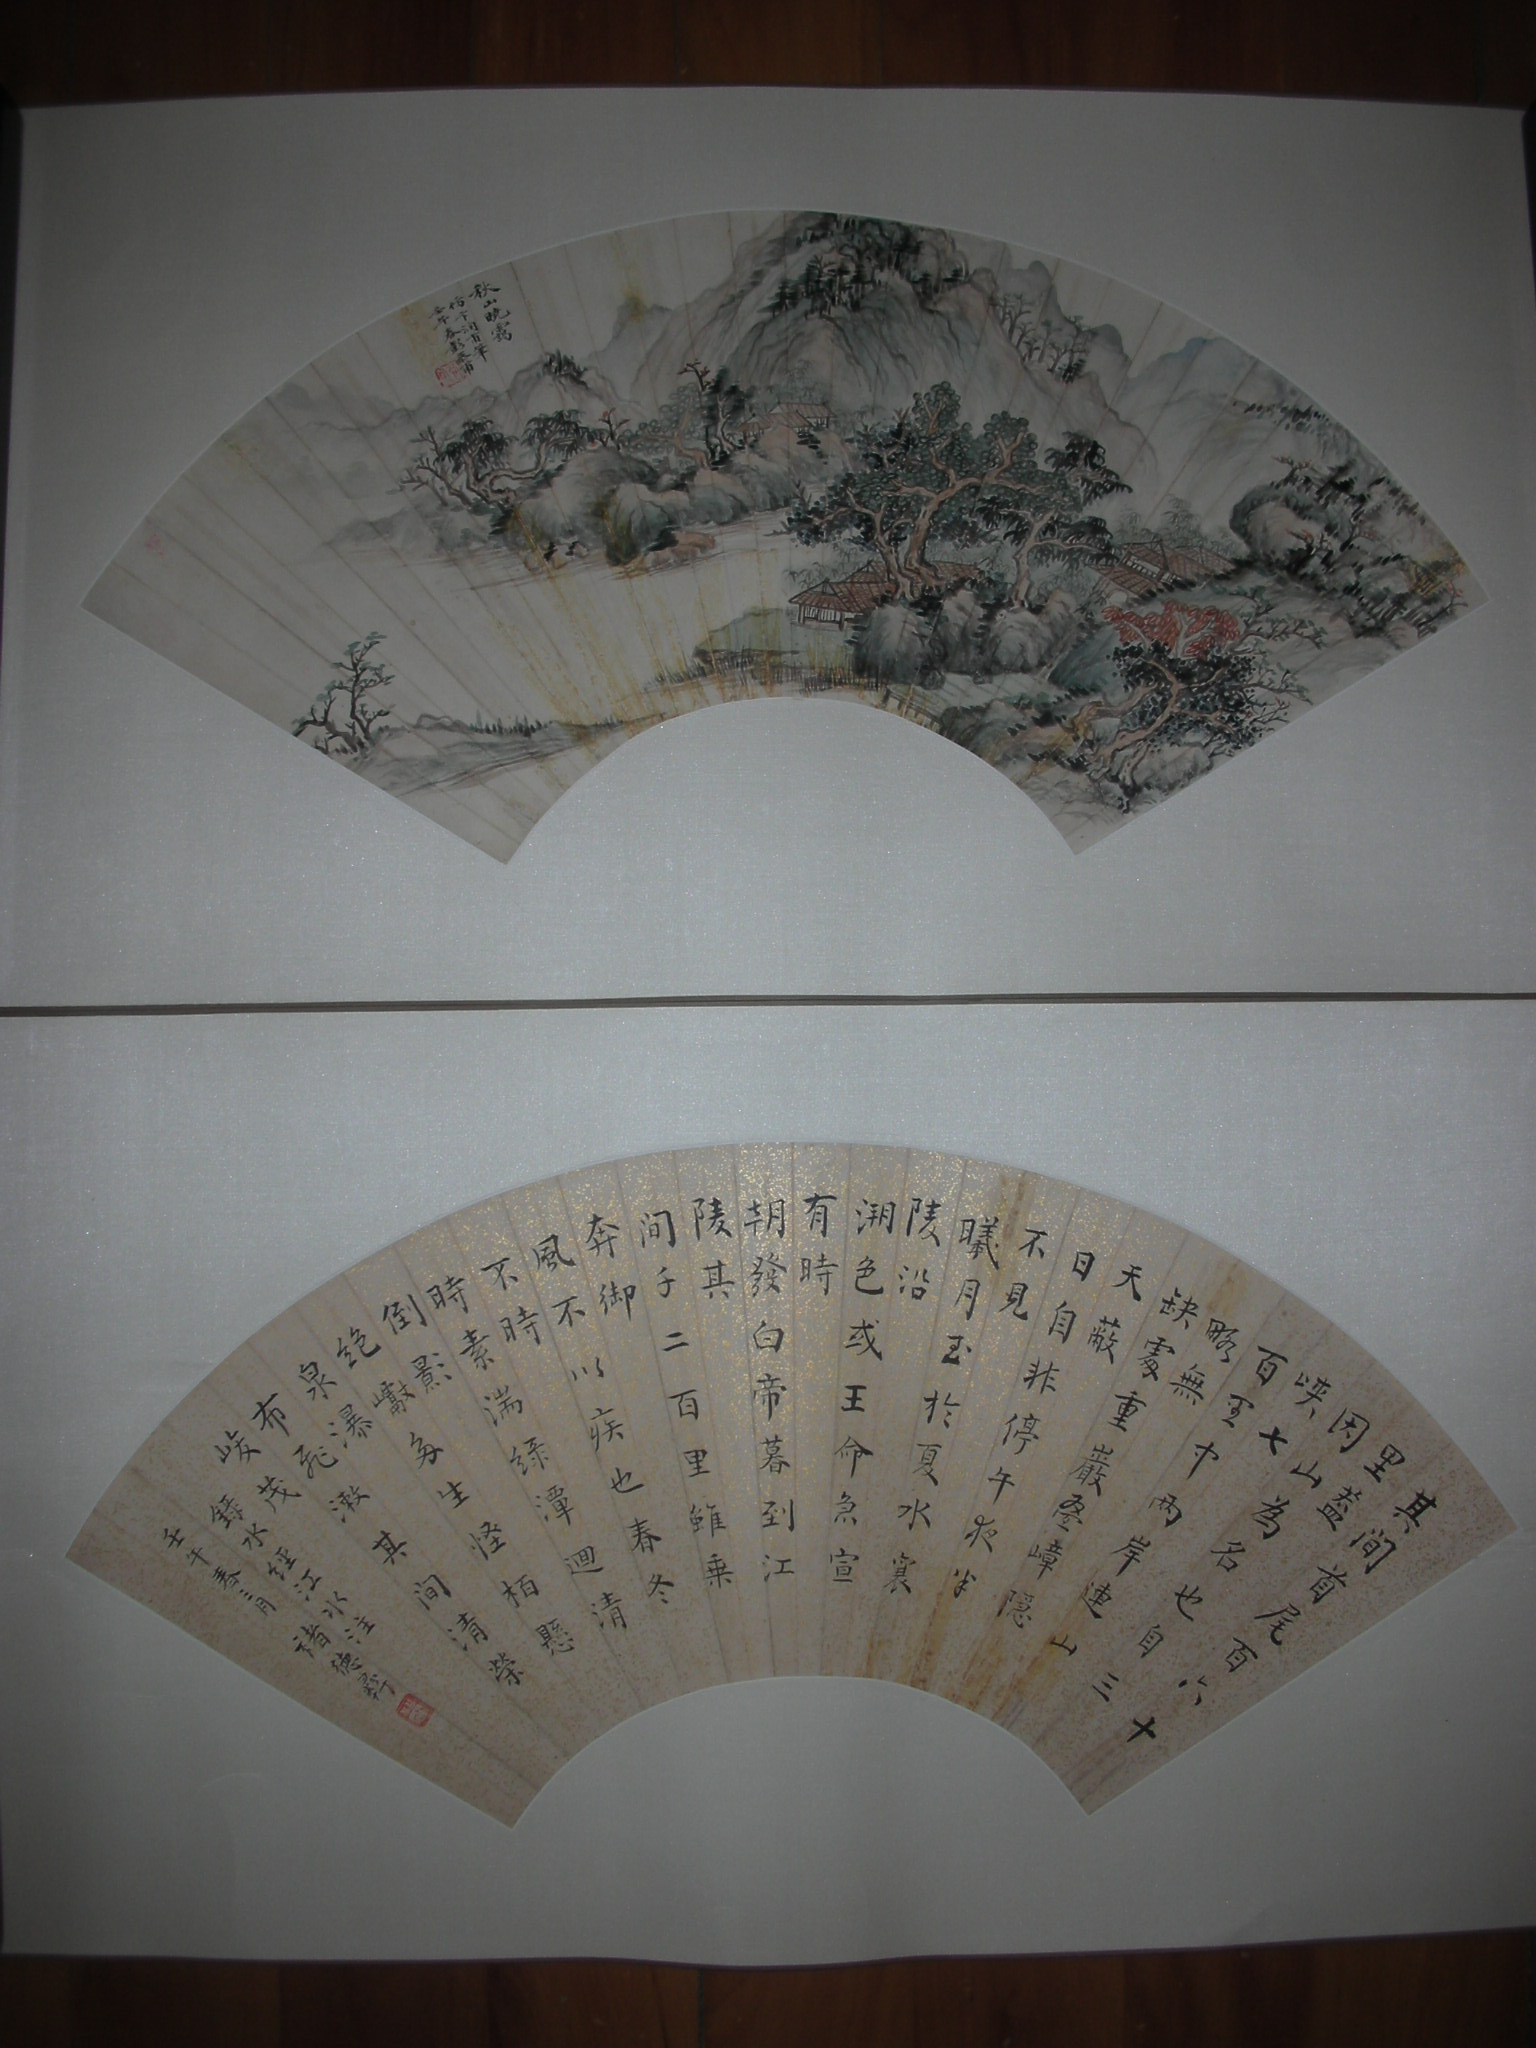 秋山曉靄
壬午春彭恭甫
其間首尾百六十
里盍
因山為名也自三
峽七
百里中兩岸連山
略無
缺處重巖疊嶂隱
天蔽
日自非停午夜半
不見
曦月至於夏水襄
陵沿
溯色或王命急宣
有時
朝發白帝暮到江
陵其
間千二百里雖乘
奔御
風不以疾也春冬
不時
時素湍綠潭迴清
倒影
絶巘多生怪栢懸
泉瀑
布飛漱其間清榮
峻茂
錄水經江水注 褚德彝
壬午春三月